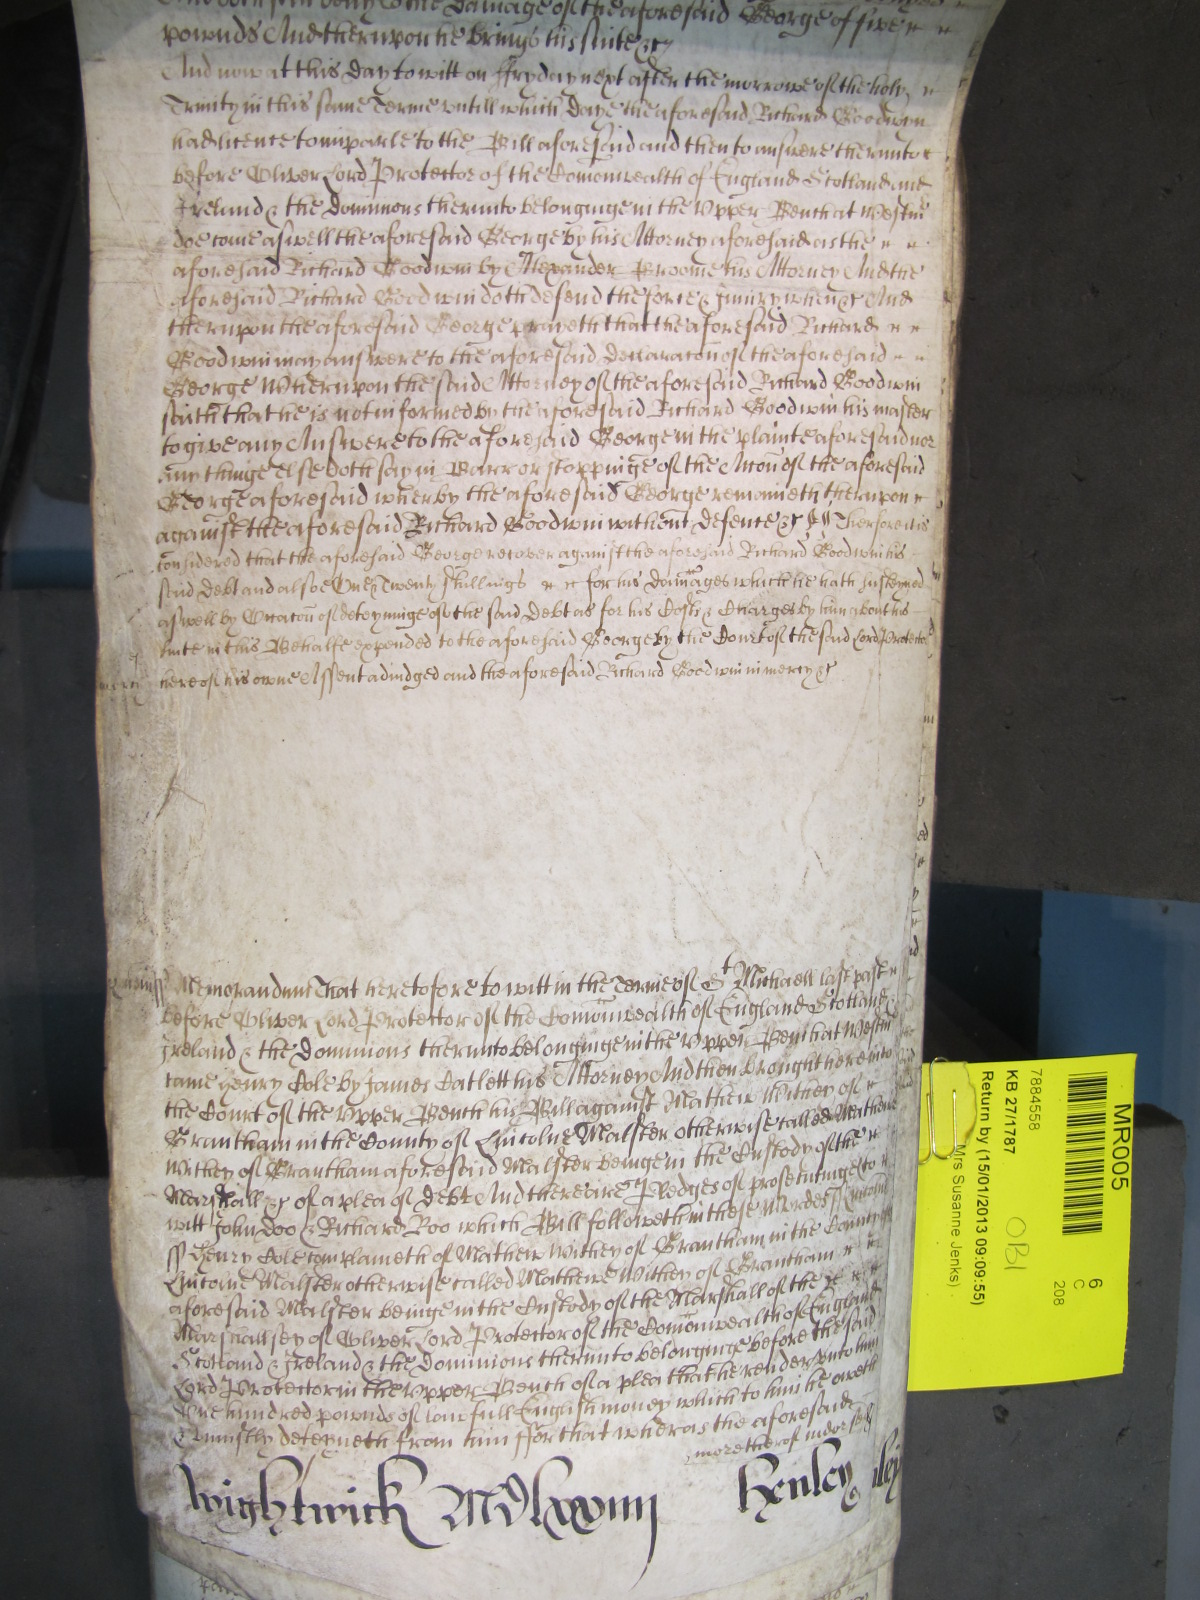 damage of the aforesaid George of five
pownds And therupon he brings his suite &c
And now at this day to witt on ffryday next after the morrowe of the holy
Trinity in this same Terme untill which daye the aforesaid Richard Goodwyn
had licence to imparle to the Bill aforesaid and then to answere therunto
before Oliver Lord Protector of the Comonwealth of England Scotland and
Ireland & the dominions therunto belonginge in the Upper Bench at Westmr
doe come aswell the aforesaid George by his Attorney aforesaid as the
aforesaid Richard Goodwin by Alexander Broome his Attorney And the
aforesaid Richard Goodwin doth defend the force & Injury when &c And
therupon the aforesaid George prayeth that the aforesaid Richard
Goodwin may answere to the aforesaid declaracon of the aforesaid
George Wherupon the said Attorney of the aforesaid Richard Goodwin
saith that he is not informed by the aforesaid Richard Goodwin his master
to give any Answere to the aforesaid George in the plainte aforesaid nor
any thinge else doth say in Barr or stoppinge of the Accon of the aforesaid
George aforesaid wherby the aforesaid George remaineth therupon
against the aforesaid Richard Goodwin without defence &c Therfore it is
considered that the aforesaid George recover against the aforesaid Richard Goodwin his
said debt and alsoe One & Twenty shillings for his damages which he hath susteyned
aswell by Occacon of deteyninge of the said debt as for his Costs & Charges by him about his
suite in this Behalfe expended to the aforesaid George by the Court of the said Lord Protector
here of his owne Assent adiudged and the aforesaid Richard Goodwin in mercy &c
mercy
Memorandum That heretofore to witt in the Terme of St Michaell last past
before Oliver Lord Protector of the Comonwealth of England Scotland &
Ireland & the Dominions therunto belonginge in the Upper Bench at Westmr
came Henry Cole by James Catlett his Attorney And then brought here into
the Court of the Upper Bench his Bill against Mathew Withey of
Grantham in the County of Lincolne Malster otherwise called Mathewe
Withey of Grantham aforesaid Malster beinge in the Custody of the
Marshall &c of a plea of debt And there are Pledges of prosecutinge to
witt John Doo & Richard Roo which Bill followeth in these Wordes
ss Henry Cole complaineth of Mathew Withey of Grantham in the County of
Lincolne Malster otherwise called Mathewe Withey of Grantham
aforesaid Malster beinge in the Custody of the Marshall of the
Marshallsey of Oliver Lord Protector of the Comonwealth of England
Scotland & Ireland & the Dominions therunto belonginge before the said
Lord Protector in the Upper Bench of a plea that he render unto him
One hundred pownds of lawfull English money which to him he oweth
& uniustly deteyneth from him ffor that wheras the aforesaid
more therof indorsed
Wightwick
Henley
MR005
6
C
208
7884558
KB 27/1787
OBI
Return by (15/01/2013 09:09:55)
Mrs Susanne Jenks)